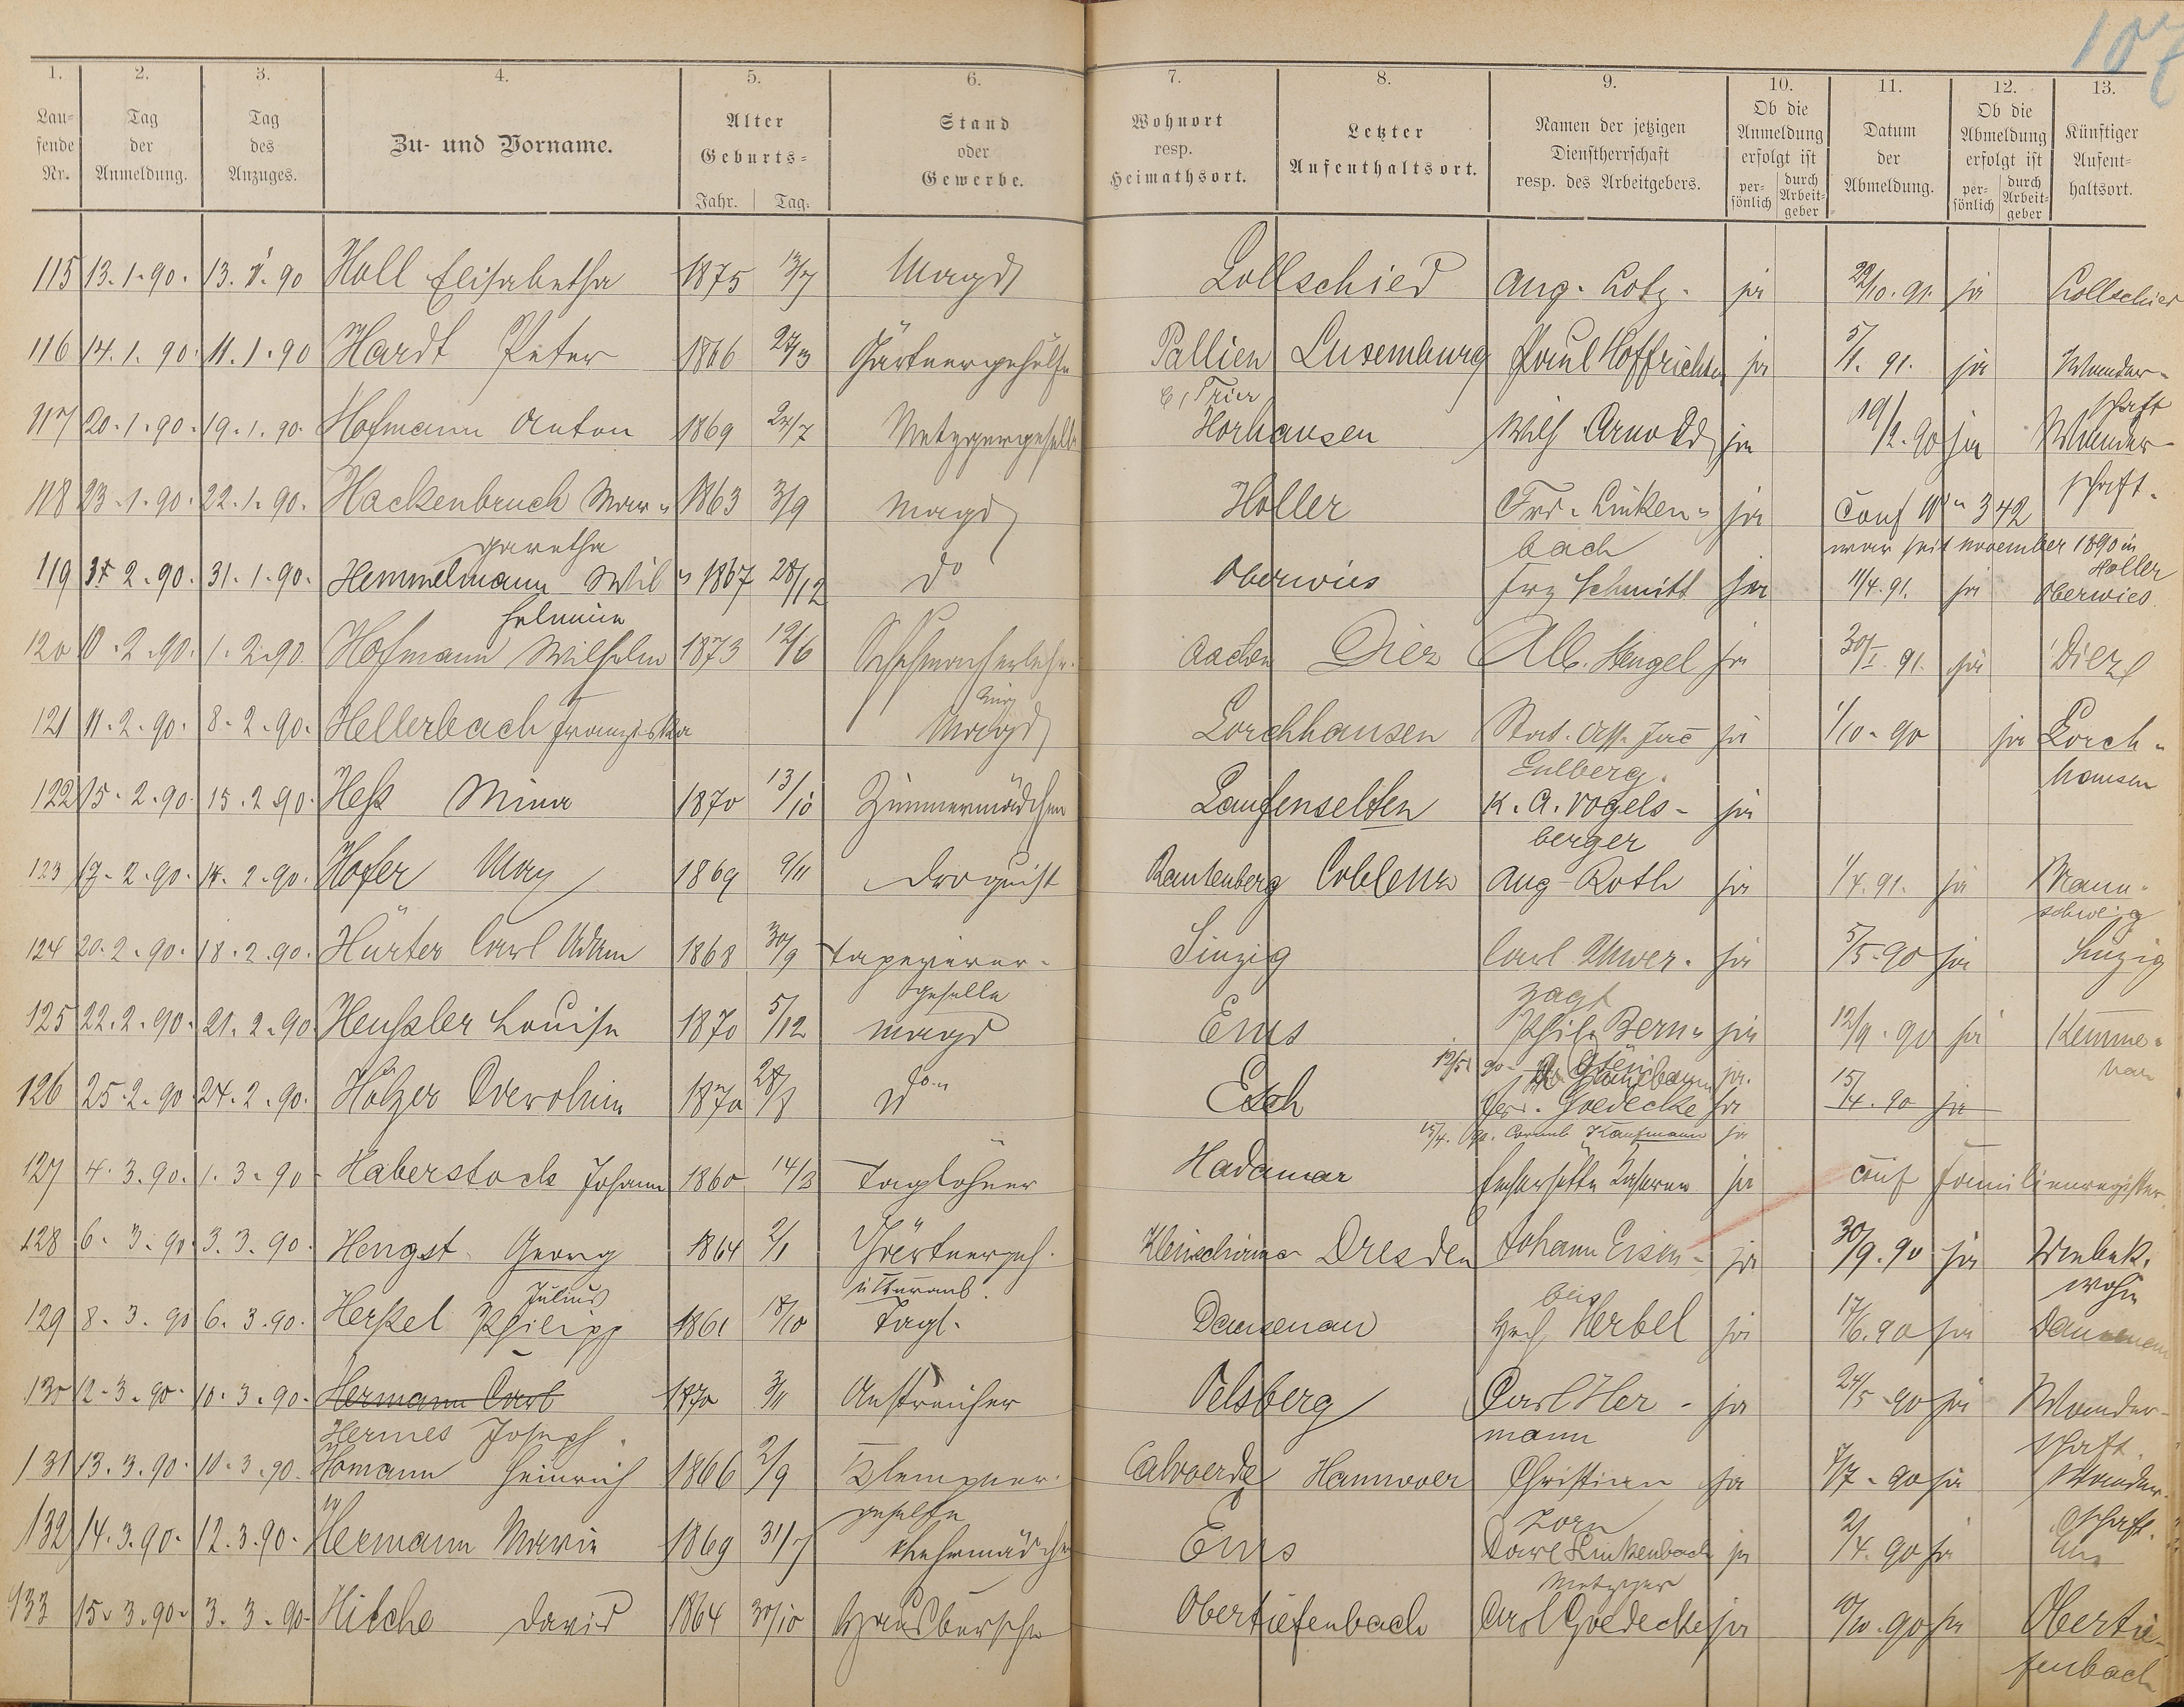 107
1. 2. 3. 4. 5. 6. 7. 8. 9. 10. 11. 12. 13.
Lau-
fende
Nr.
Tag
der
Anmeldung.
Tag
des
Anzuges.
Zu- und Vorname.
Alter
Geburts-
Jahr. Tag.
Stand
oder
Gewerbe.
Wohnort
resp.
Heimathsort.
Letzter
Aufenthaltsort.
Namen der jetzigen
Dienstherrschaft
resp. des Arbeitgebers.
Ob die
Anmeldung
erfolgt ist
per-
sönlich
durch
Arbeit-
geber
Datum
der
Abmeldung.
Ob die
Abmeldung
erfolgt ist
per-
sönlich
durch
Arbeit-
geber
Künftiger
Aufent-
haltsort.
115 13.1.90. 13.1.90 Holl Elisabetha 1875 13/7 Magd Lollschied Aug. Lotz. ja 22/10.91. ja Lollschied
116 14.1.90. 11.1.90 Hardt Peter 1866 27/3 Gärtnergehülfe Pallien Luxemburg Paul Hoffrichter ja 5/1.91. ja Wander-
b/Trier schaft
117 20.1.90. 19.1.90. Hofmann Anton 1869 24/7 Metzgergeselle Horhausen Wilh Arnold ja 19/2.90 ja Wander-
schaft.
118 23.1.90. 22.1.90. Hackenbruch Mar- 1863 3/9 Magd Holler Frd. Linken- ja Conf Nr 342
garetha bach war seit november 1890 in
Holler
119 3 2.90. 31.1.90. Hemmelmann Wil- 1867 28/12 do Oberwies Frz Schmitt ja 11/4.91. ja Oberwies
helmine
120 10.2.90. 1.2.90 Hofmann Wilhelm 1873 12/6 Schuhmacherlehr- Aachen Diez Alb. Stengel ja 30/I.91. ja Diez
ling
121 11.2.90. 8.2.90. Hellerbach Franziska Magd Lorchhausen Jac ja 1/10.90 ja Lorch-
Eulberg. hausen
122 15.2.90. 15.2.90. Heß Mina 1870 13/10 Zimmermädchen Laufenselden K. A. Vogels- ja
berger
123 17.2.90. 14.2.90. Hofer Max 1869 9/11 Droguist Rautenberg Coblenz Aug Roth ja 1/4.91. ja Braun-
schweig
124 20.2.90. 18.2.90. Hürter Carl Adam 1868 30/9 Tapezierer- Sinzig Carl Unver- ja 5/5.90 ja Sinzig
geselle zagt
125 22.2.90. 21.2.90 Heußler Louise 1870 5/12 Magd Ems Phil. Bern- ja 12/9.90 ja Kemme-
nau
126 25.2.90 24.2.90. Holzer Carolina 1870 28/8 do Esch Fer. Goedecke ja 15/4.90 ja
15/4.90. Kaufmann ja
127 4.3.90. 1.3.90 Haberstock Johann 1860 14/3 Taglöhner Hadamar ja Conf Familienregister
128 6.3.90. 3.3.90. Hengst Georg 1864 2/1 Gärtnergeh. Dresden Johann Eisen- ja 30/9.90 ja Unbek.
Julius beis wohin
129 8.3.90 6.3.90. Herßel Philipp 1861 18/10 Tagl. Dausenau Hch Herbel ja 17/6.90 ja Dausenau
130 12.3.90. 10.3.90. Hermann Carl 1870 3/11 Anstreicher Oelsberg Carl Her- ja 24/5.90 ja Wander-
Hermes Joseph. mann schaft.
131 13.3.90. 10.3.90. Homann Heinrich 1866 2/9 Klempner- Calvoerde Hannover Christian ja 7/7.90 ja Wander-
geselle Zorn schaft.
132 14.3.90. 12.3.90. Hermann Maria 1869 31/7 Ems Carl Linkenbach ja 2/4.90 ja Ems
Metzger
133 15.3.90. 3.3.90. Hilche David 1864 30/10 Hausbursche Obertiefenbach Carl Goedecke ja 10/10.90 ja Obertie-
fenbach